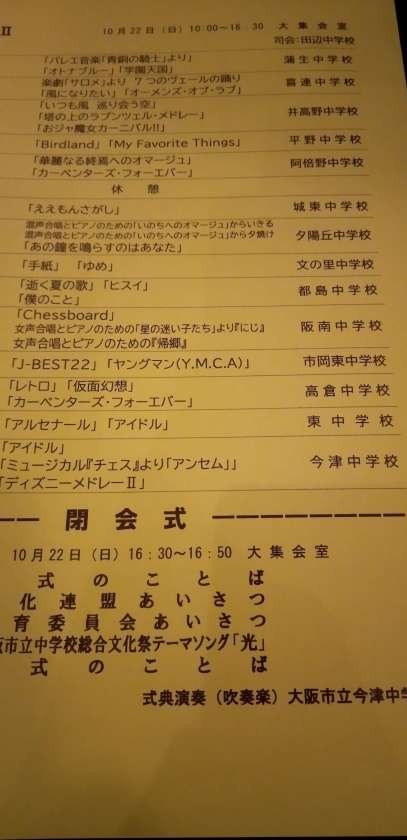 Ⅱ 10月22日（日）10:00〜16:30 大集会室
司会：田辺中学校
「バレエ音楽「青銅の騎士」より」 蒲生中学校
「オトナブルー」「学園天国」
楽劇「サロメ」より 7つのヴェールの踊り 喜連中学校
「風になりたい」「オーメンズ・オブ・ラブ」
「いつも風 巡り会う空」
「塔の上のラプンツェル・メドレー」 井高野中学校
「おジャ魔女カーニバル!!」
「Birdland」「My Favorite Things」 平野中学校
「華麗なる終焉へのオマージュ」 阿倍野中学校
「カーペンターズ・フォーエバー」
休憩
「ええもんさがし」 城東中学校
混声合唱とピアノのための「いのちへのオマージュ」からいきる
混声合唱とピアノのための「いのちへのオマージュ」から夕焼け 夕陽丘中学校
「あの鐘を鳴らすのはあなた」
「手紙」「ゆめ」 文の里中学校
「逝く夏の歌」「ヒスイ」 都島中学校
「僕のこと」
「Chessboard」
女声合唱とピアノのための「星の迷い子たち」より『にじ』 阪南中学校
女声合唱とピアノのための『帰郷』
「J-BEST22」「ヤングマン(Y.M.C.A)」 市岡東中学校
「レトロ」「仮面幻想」 高倉中学校
「カーペンターズ・フォーエバー」
「アルセナール」「アイドル」 東中学校
「アイドル」
「ミュージカル『チェス』より「アンセム」」 今津中学校
「ディズニーメドレーⅡ」
閉会式
10月22日（日）16:30〜16:50 大集会室
式のことば
化連盟あいさつ
育委員会あいさつ
阪市立中学校総合文化祭テーマソング「光」
式のことば
式典演奏（吹奏楽）大阪市立今津中学